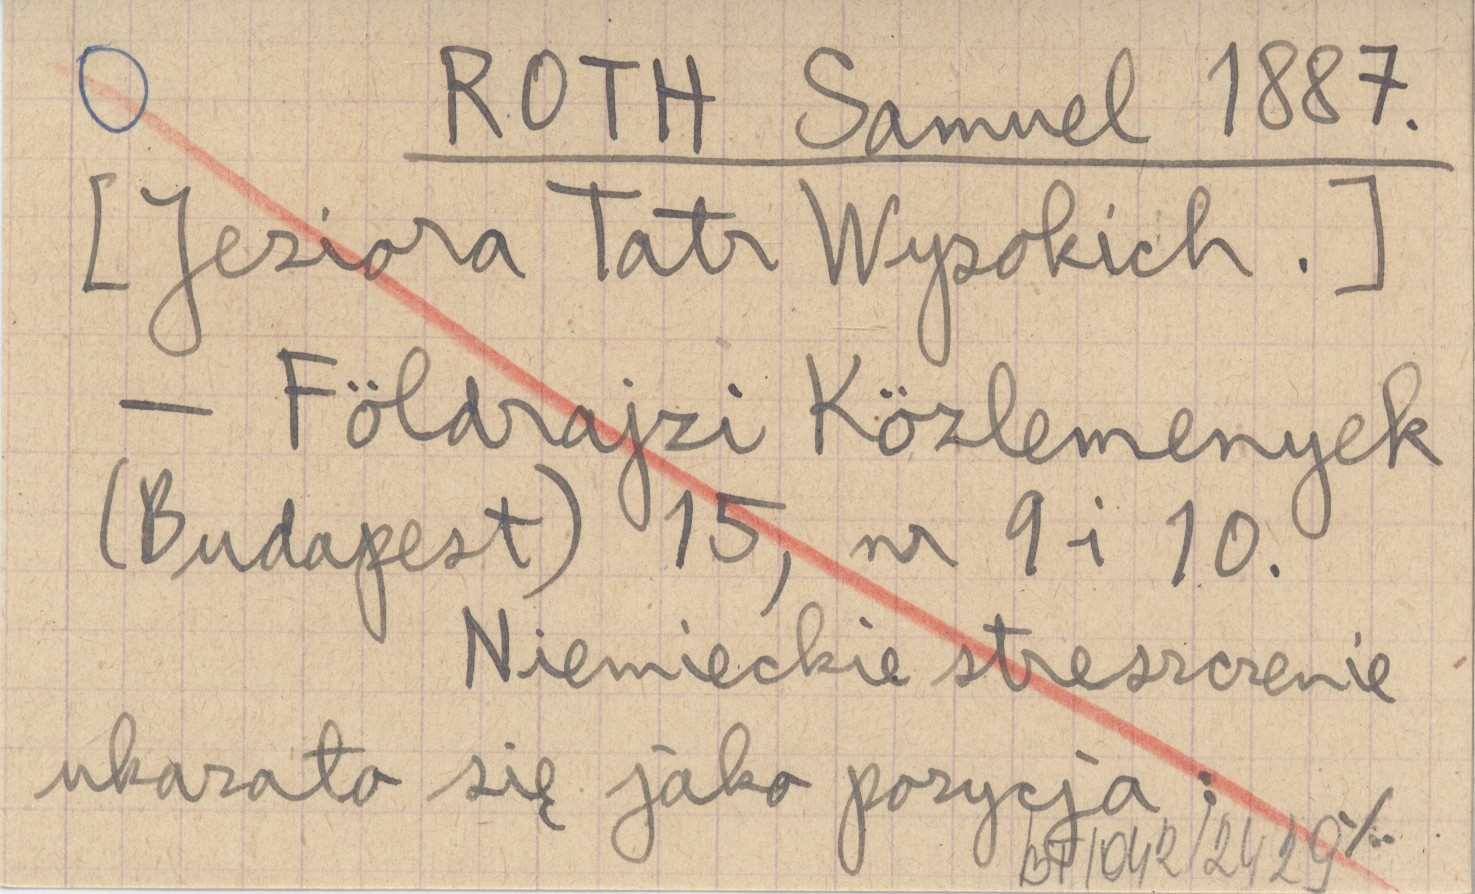 ROTH Samuel 1887.
[Jeziora Tatr Wysokich.]
— Földrajzi Közlemenyek
(Budapest) 15, nr 9 i 10.
Niemieckie streszczenie
ukazało się jako pozycja:
BT/042/2429 ./.